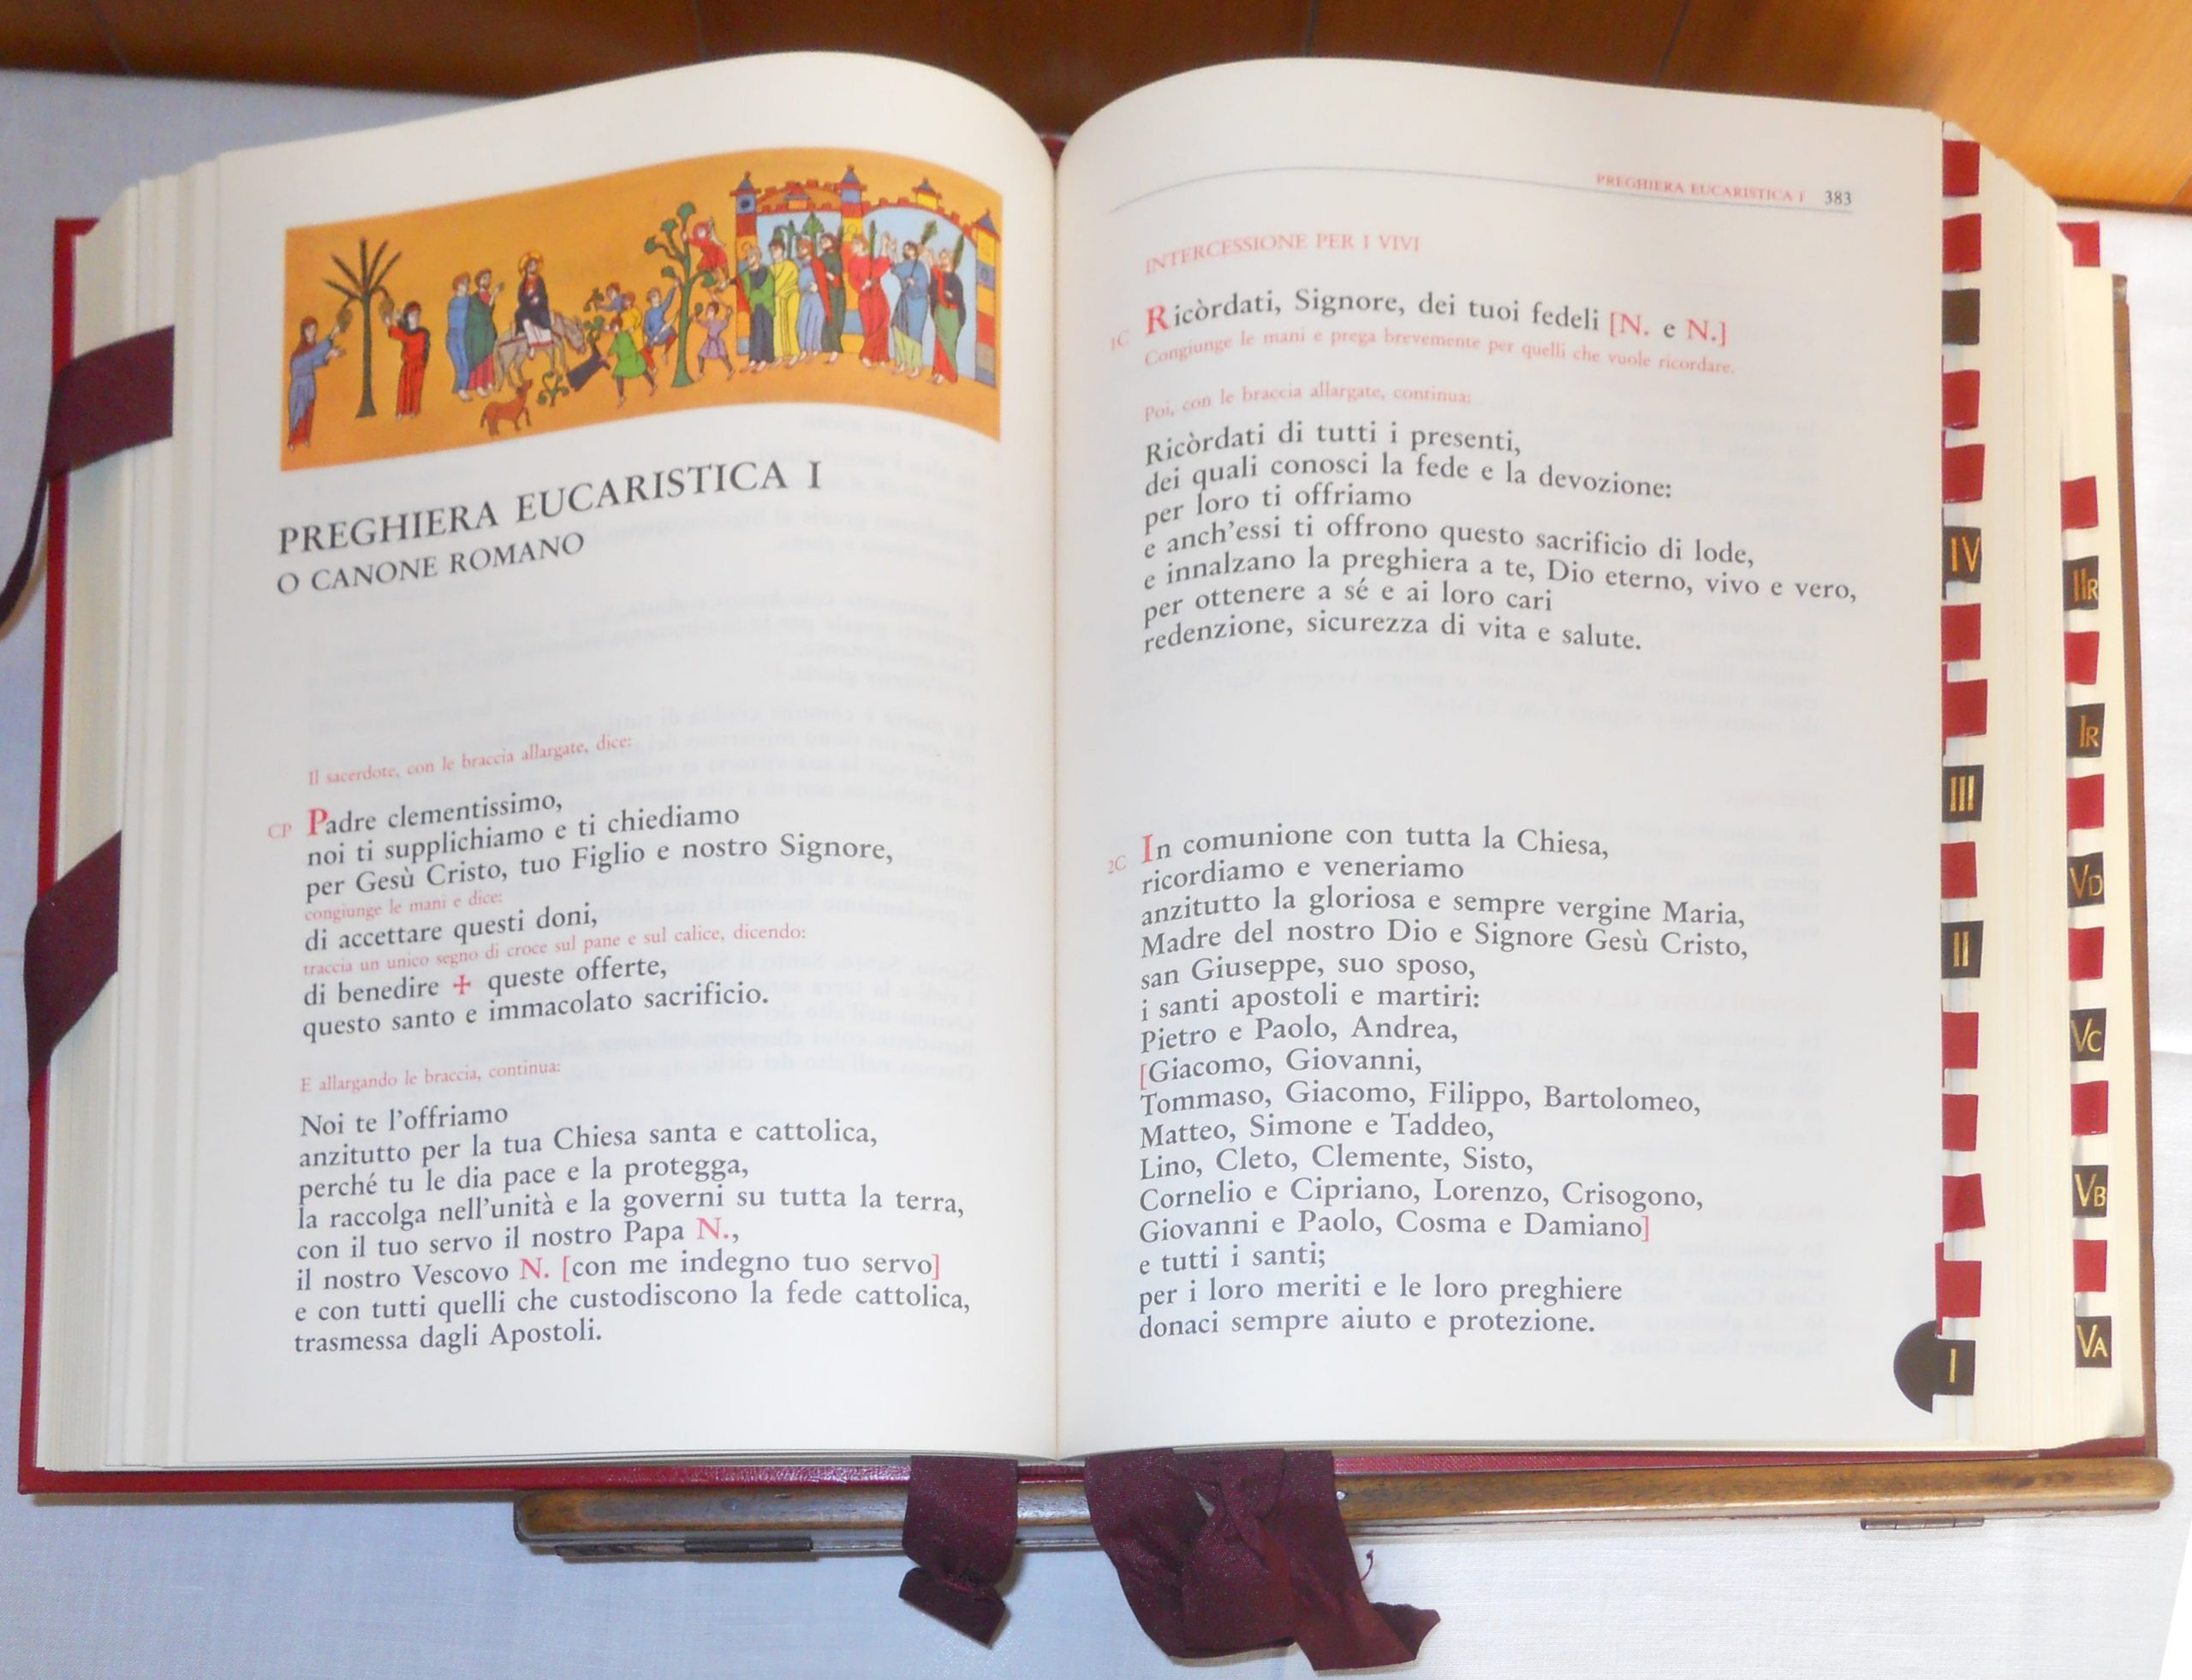 PREGHIERA EUCARISTICA I
O CANONE ROMANO
Il sacerdote, con le braccia allargate, dice:
CP Padre clementissimo,
noi ti supplichiamo e ti chiediamo
per Gesù Cristo, tuo Figlio e nostro Signore,
congiunge le mani e dice:
di accettare questi doni,
traccia un unico segno di croce sul pane e sul calice, dicendo:
di benedire ✢ queste offerte,
questo santo e immacolato sacrificio.
E allargando le braccia, continua:
Noi te l'offriamo
anzitutto per la tua Chiesa santa e cattolica,
perché tu le dia pace e la protegga,
la raccolga nell'unità e la governi su tutta la terra,
con il tuo servo il nostro Papa N.,
il nostro Vescovo N. [con me indegno tuo servo]
e con tutti quelli che custodiscono la fede cattolica,
trasmessa dagli Apostoli.
PREGHIERA EUCARISTICA I 383
INTERCESSIONE PER I VIVI
1C Ricòrdati, Signore, dei tuoi fedeli [N. e N.]
Congiunge le mani e prega brevemente per quelli che vuole ricordare.
Poi, con le braccia allargate, continua:
Ricòrdati di tutti i presenti,
dei quali conosci la fede e la devozione:
per loro ti offriamo
e anch'essi ti offrono questo sacrificio di lode,
e innalzano la preghiera a te, Dio eterno, vivo e vero,
per ottenere a sé e ai loro cari
redenzione, sicurezza di vita e salute.
2C In comunione con tutta la Chiesa,
ricordiamo e veneriamo
anzitutto la gloriosa e sempre vergine Maria,
Madre del nostro Dio e Signore Gesù Cristo,
san Giuseppe, suo sposo,
i santi apostoli e martiri:
Pietro e Paolo, Andrea,
[Giacomo, Giovanni,
Tommaso, Giacomo, Filippo, Bartolomeo,
Matteo, Simone e Taddeo,
Lino, Cleto, Clemente, Sisto,
Cornelio e Cipriano, Lorenzo, Crisogono,
Giovanni e Paolo, Cosma e Damiano]
e tutti i santi;
per i loro meriti e le loro preghiere
donaci sempre aiuto e protezione.
IV
III
II
I
IIR
IR
VD
VC
VB
VA